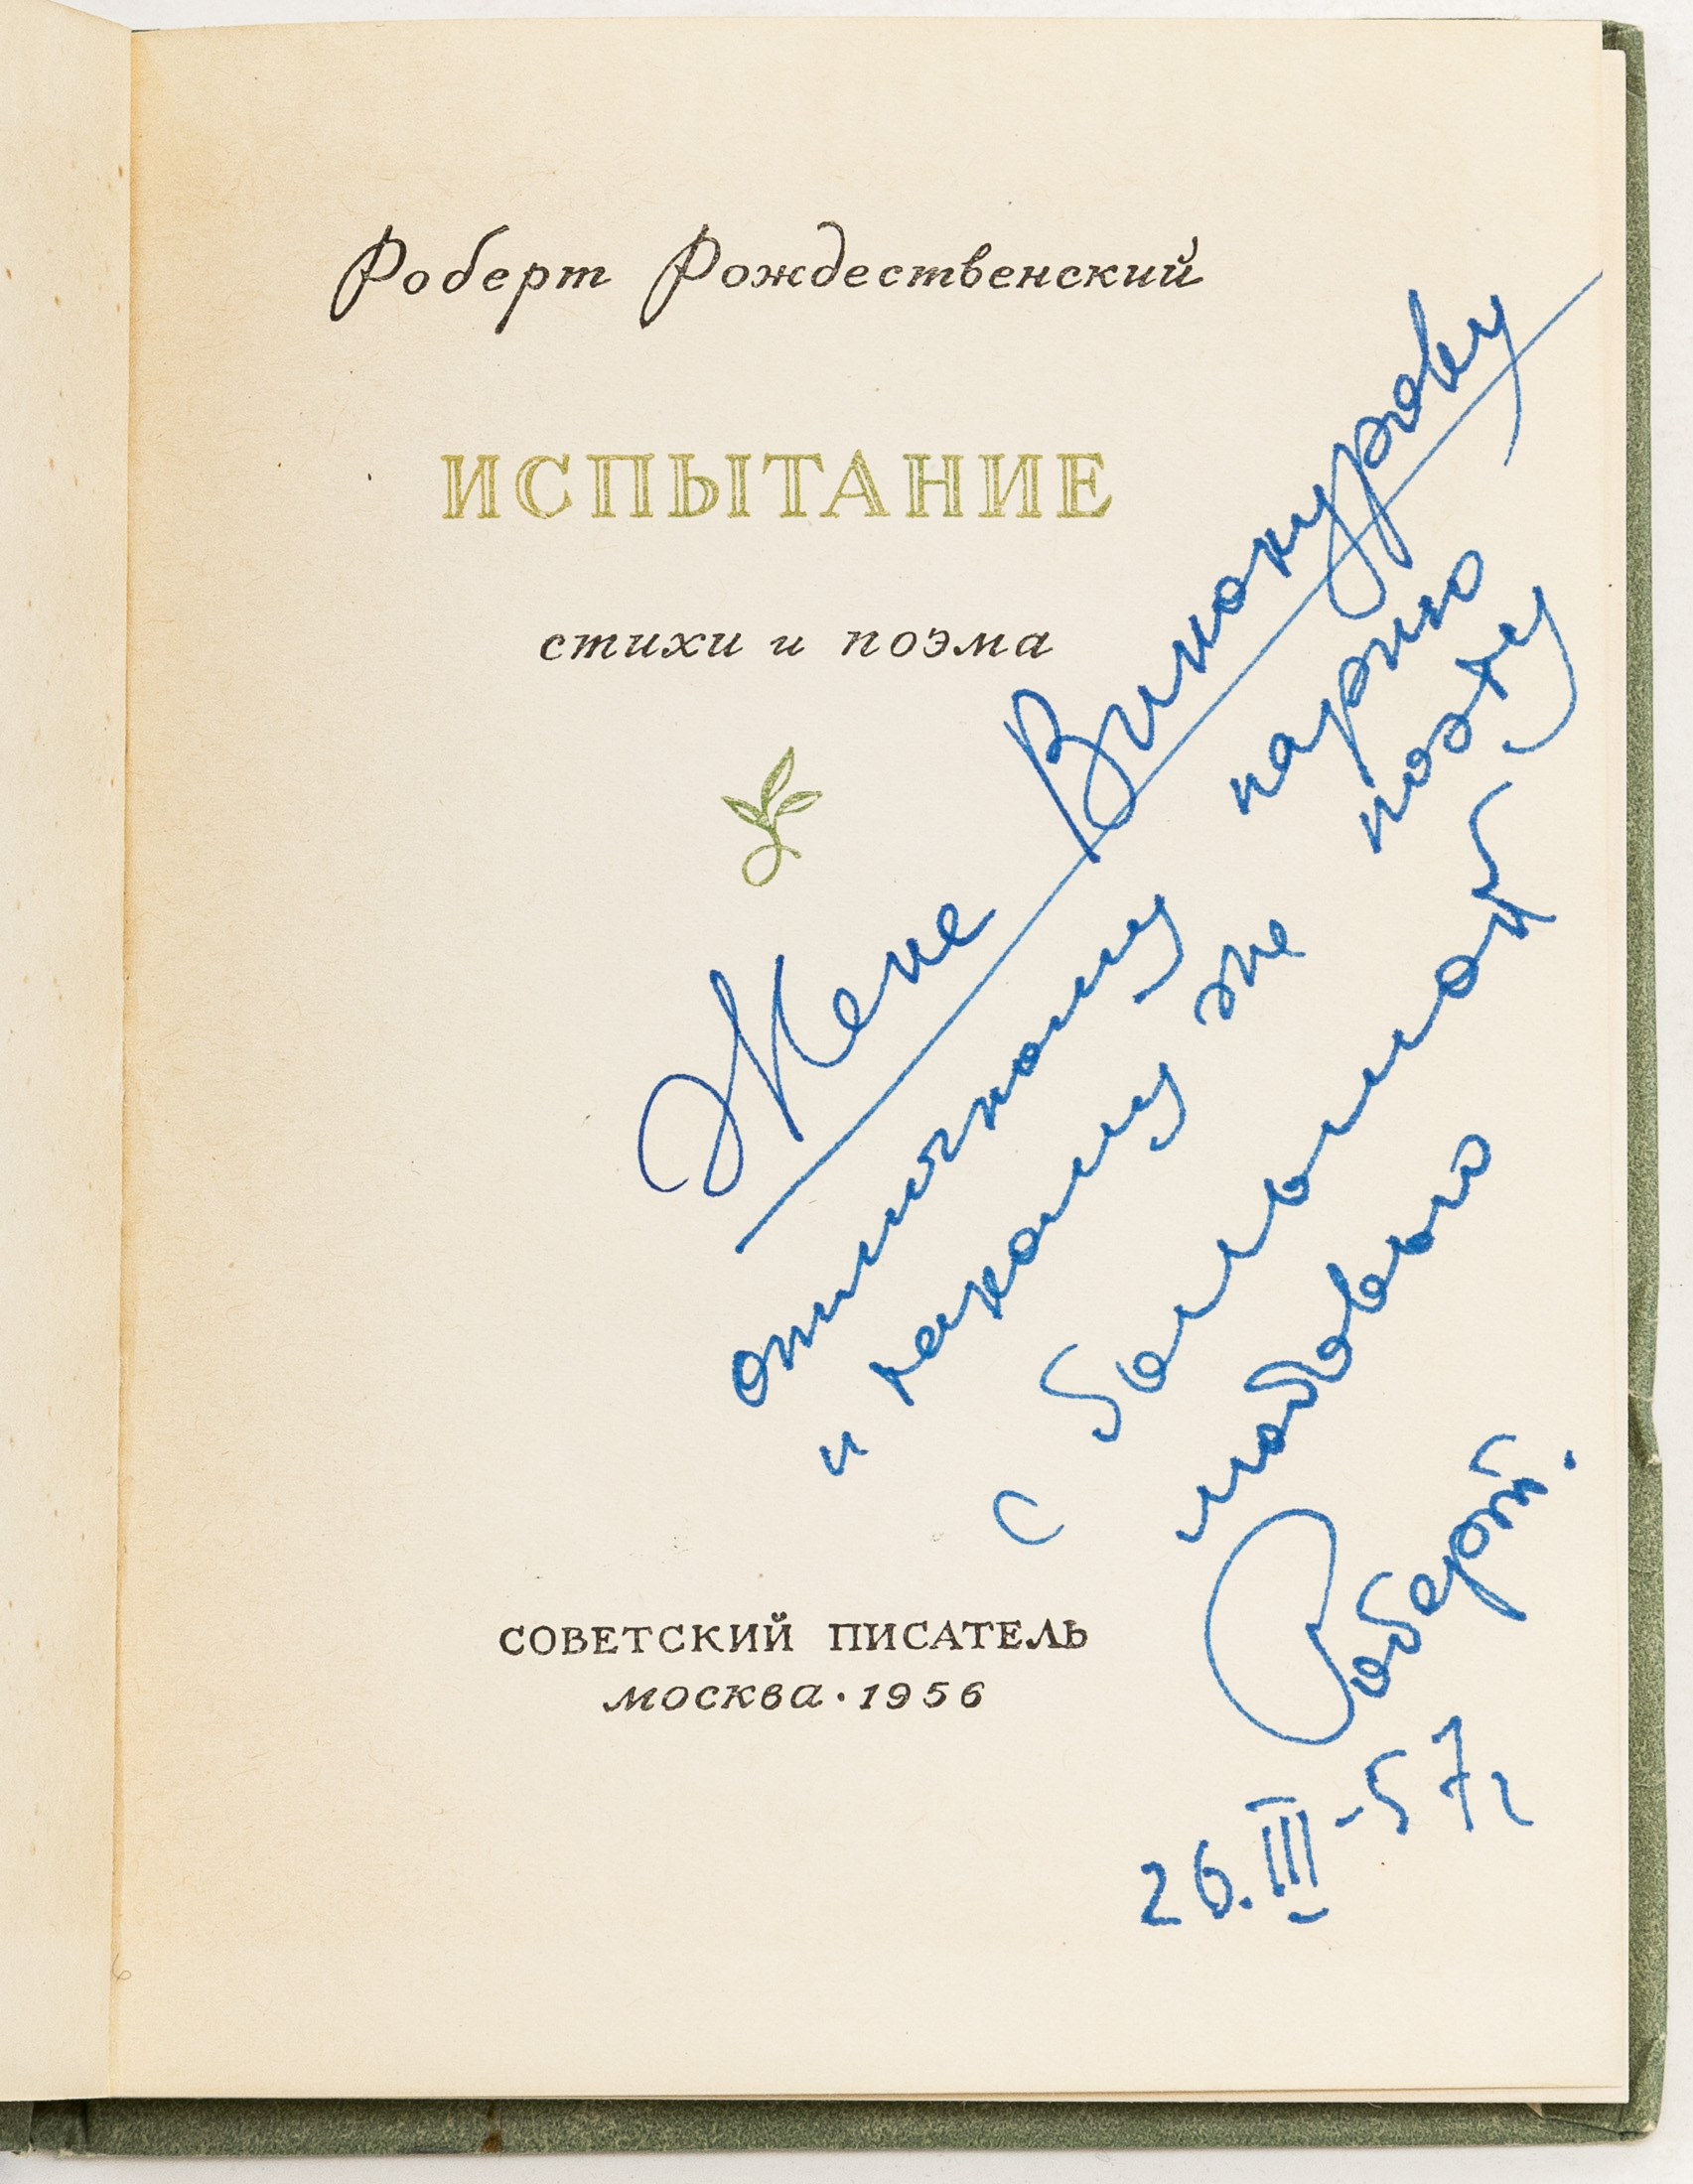 Роберт Рождественский
ИСПЫТАНИЕ
стихи и поэма
СОВЕТСКИЙ ПИСАТЕЛЬ
МОСКВА · 1956
Жене Винокурову
отличному парню
и такому же поэту
с большой
любовью
Роберт.
26.III-57г